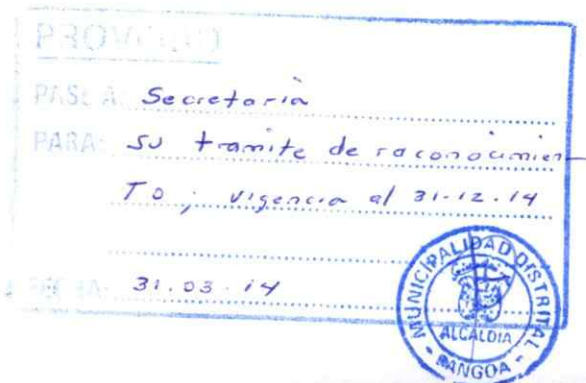 PROVEIDO
PASE A: Secretaria
PARA: su tramite de raconocimien-
TO ; vigencia al 31-12.14
FECHA: 31.03.14
MUNICIPALIDAD DISTRITAL
ALCALDIA
PANGOA